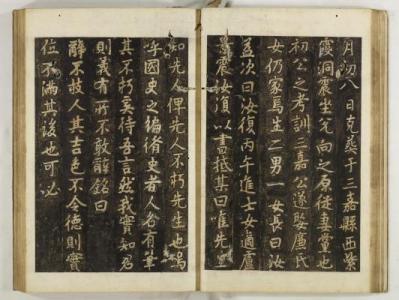 月初八日克葬于三嘉縣西紫
霞洞震坐兌向之原從妻堂也
初公之考訓三嘉公遂娶廬氏
女仍家焉生二男一女長曰汝
為次曰汝復丙午進士女適廬
震汝復以書抵某曰唯先
知先人俾先人不朽先生也嗚
呼國史之編脩史者人各有筆
其不朽奚待吾言然我實知君
則義有所不敢辭銘曰
醉不技人其吉色不令德則實
位不滿其後也可必